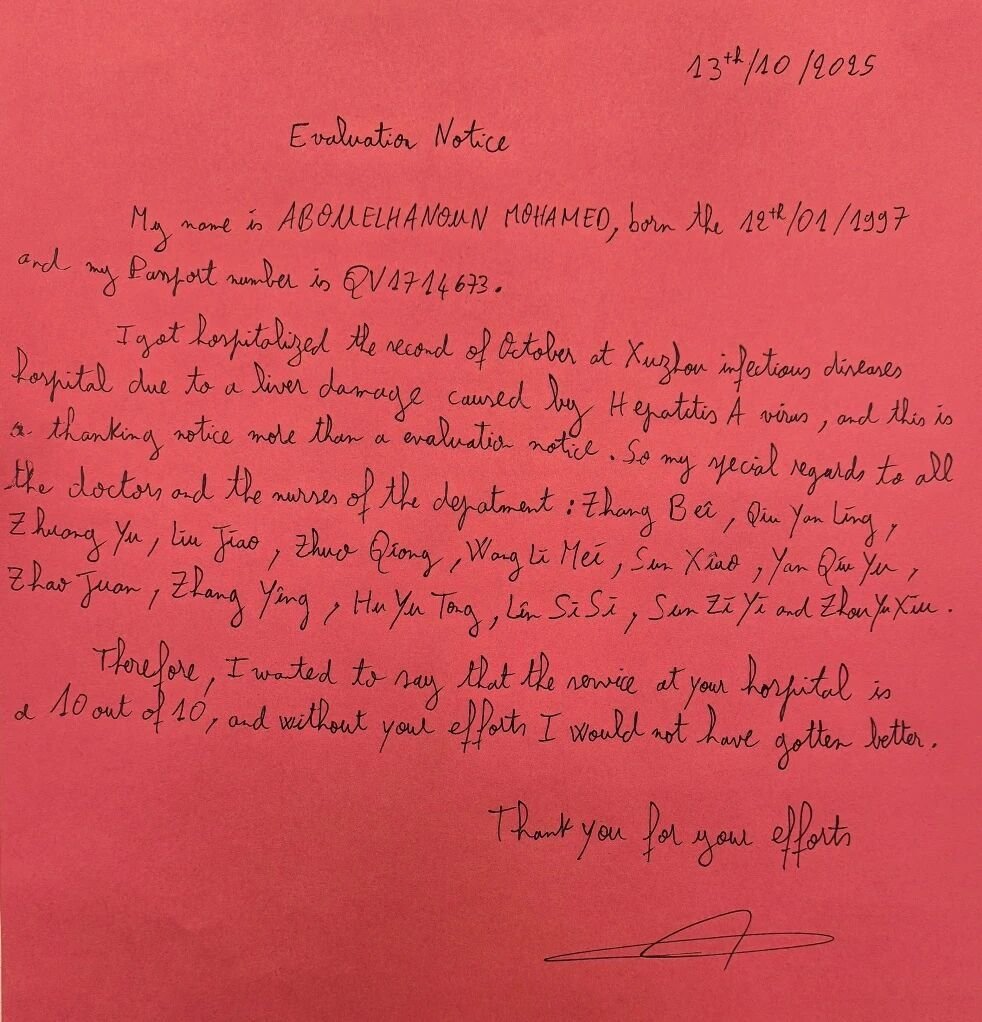 13th/10/2025
Evaluation Notice
My name is ABOUELHANOUN MOHAMED, born the 12th/01/1997
and my Passport number is QV1714673.
I got hospitalized the second of October at Xuzhou infectious diseases
hospital due to a liver damage caused by Hepatitis A virus, and this is
a thanking notice more than a evaluation notice. So my special regards to all
the doctors and the nurses of the depatment : Zhang Bei, Qiu Yan Ling,
Zhuang Yu, Liu Jiao, Zhuo Qiong, Wang Li Mei, Sun Xiao, Yan Qiu Yu,
Zhao Juan, Zhang Ying, Hu Yu Tong, Lin Si Si, Sun Zi Yi and Zhou Yu Xiu.
Therefore, I wanted to say that the service at your hospital is
a 10 out of 10, and without your efforts I would not have gotten better.
Thank you for your efforts